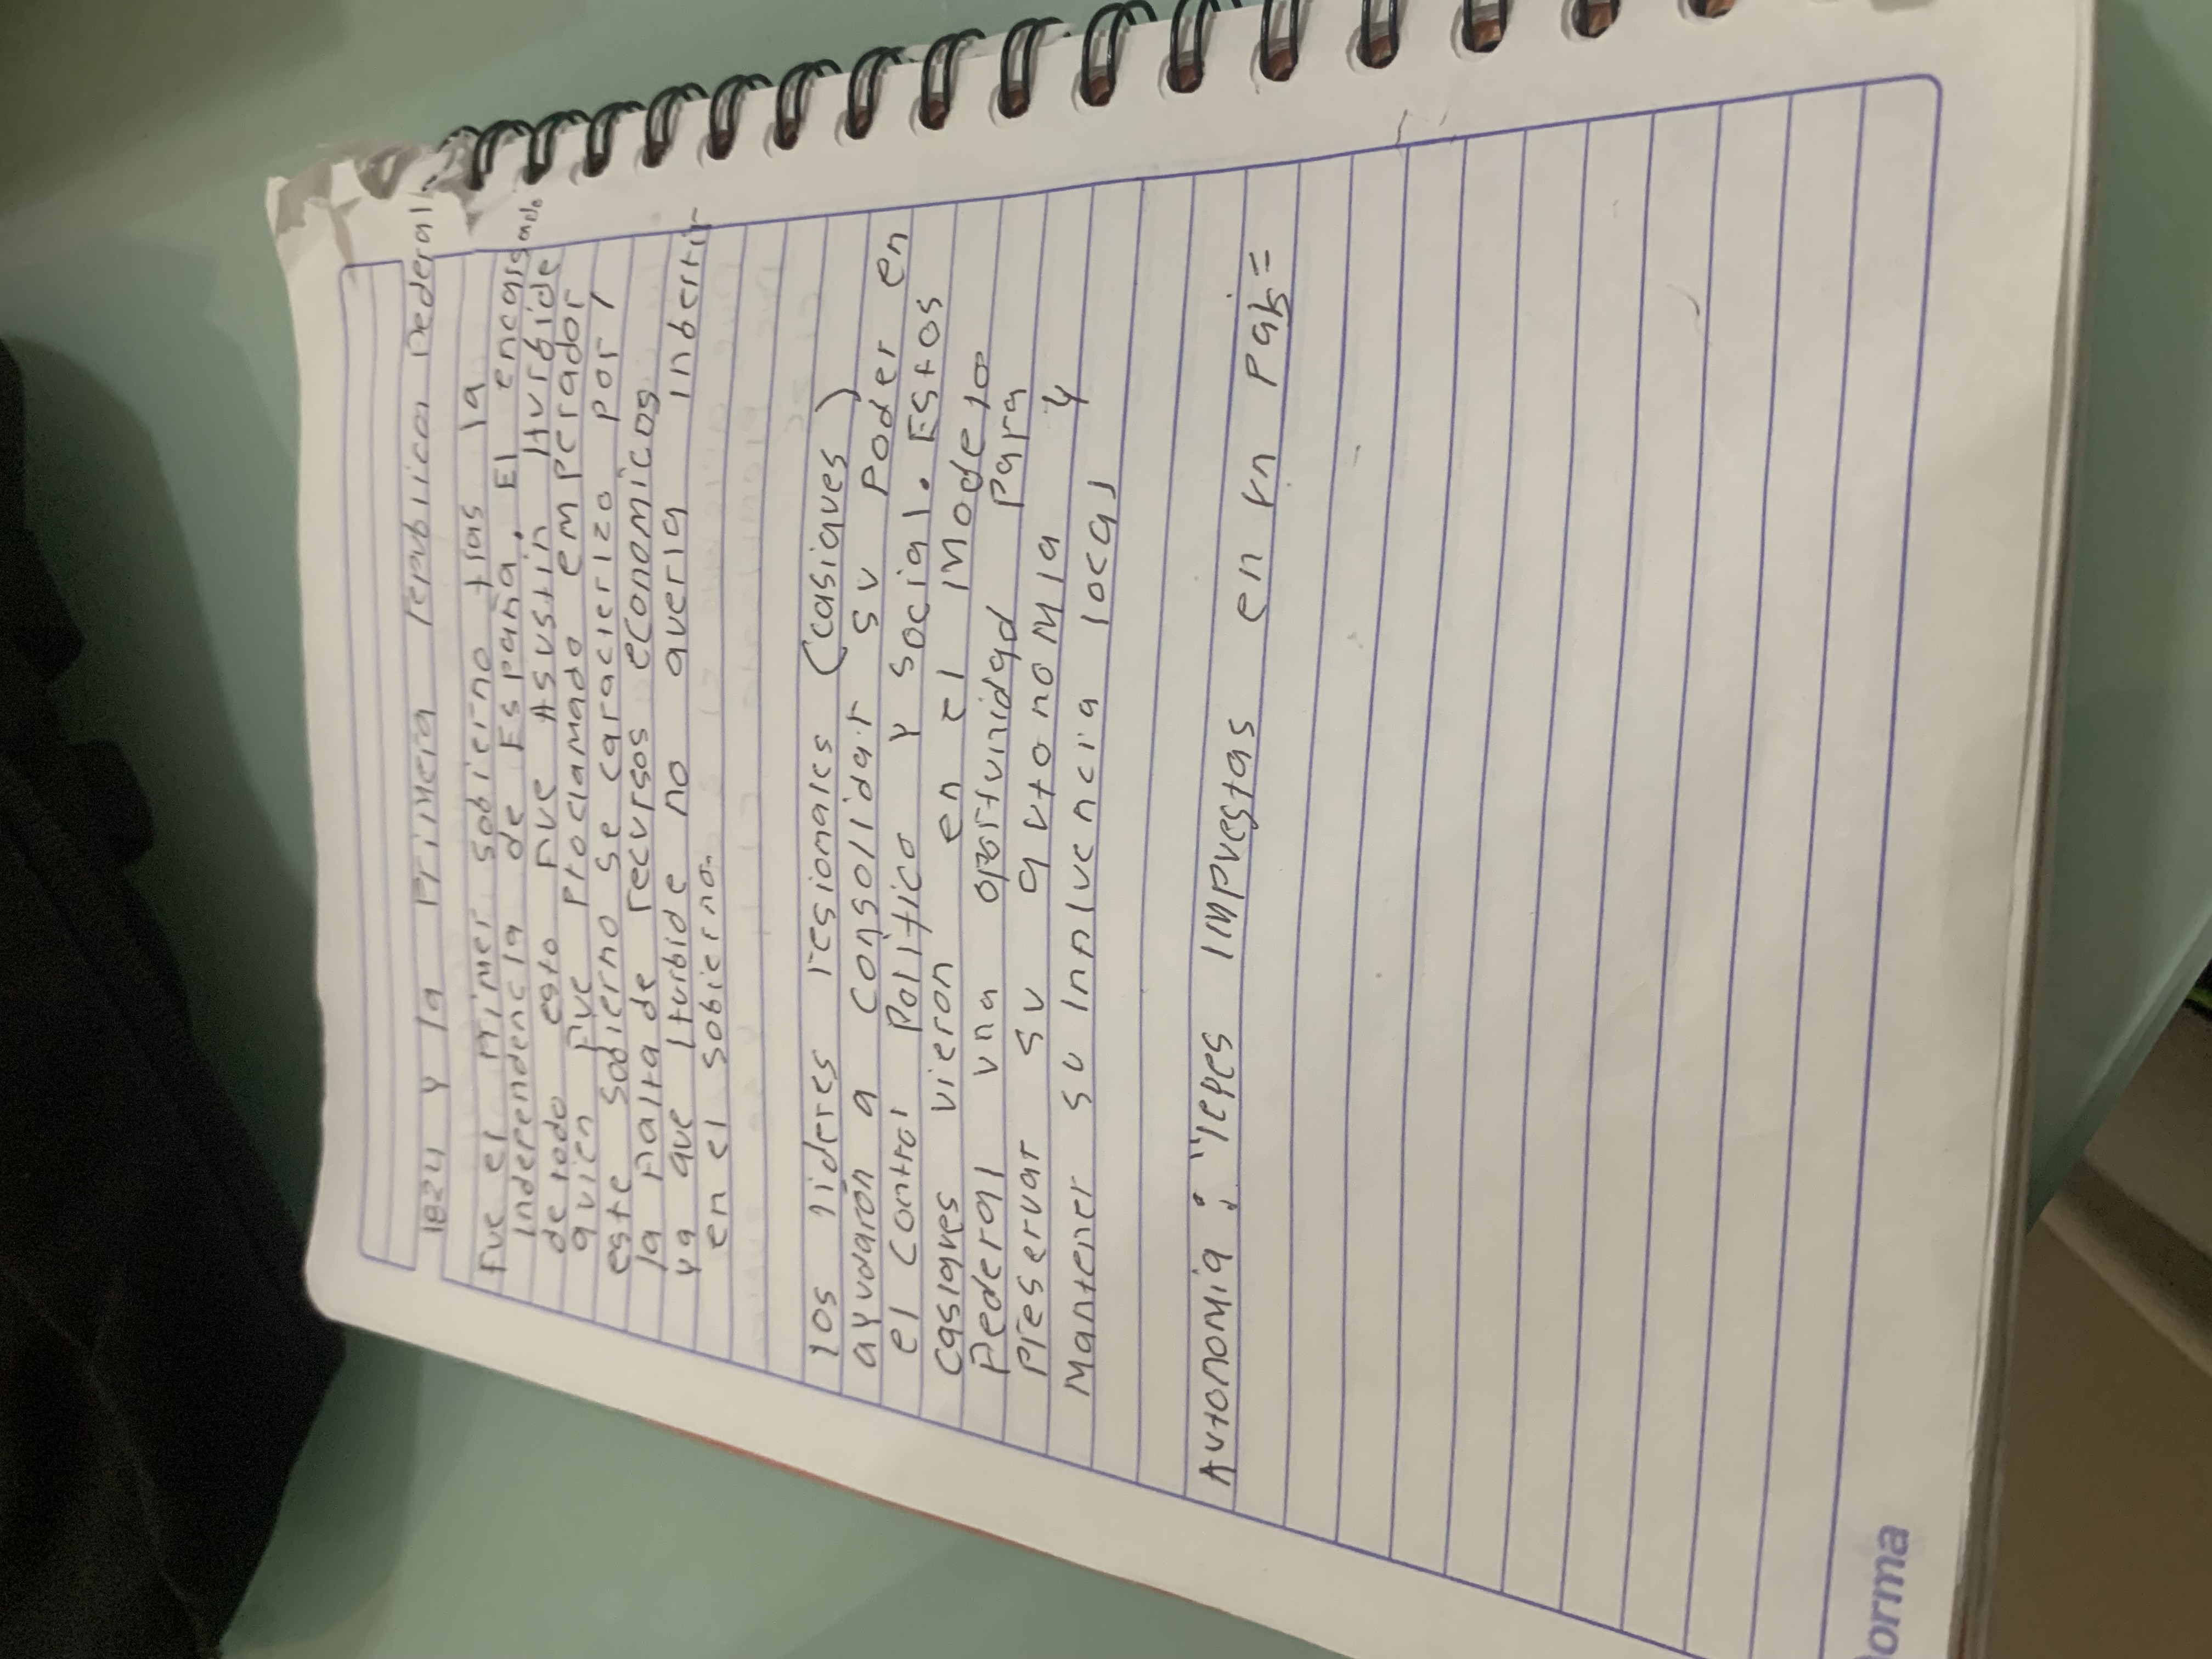 1824 y la Primera republica Federal
Fue el Primer gobierno tras la
independencia de España. El encargado
de todo esto fue Agustin Iturbide
quien fue Proclamado emperador
este gobierno se caracierizo por
la falta de recursos economicos
ya que Iturbide no queria inbertir
en el gobierno.
los lideres regionales (casiques)
ayudarón a consolidar su Poder en
el control Politico y social. Estos
casiques vieron en el Modelo
Federal una oportunidad Para
Preservar su autonomia y
Mantener su influencia local
Autonomia: "leyes impuestas en un País=
orma